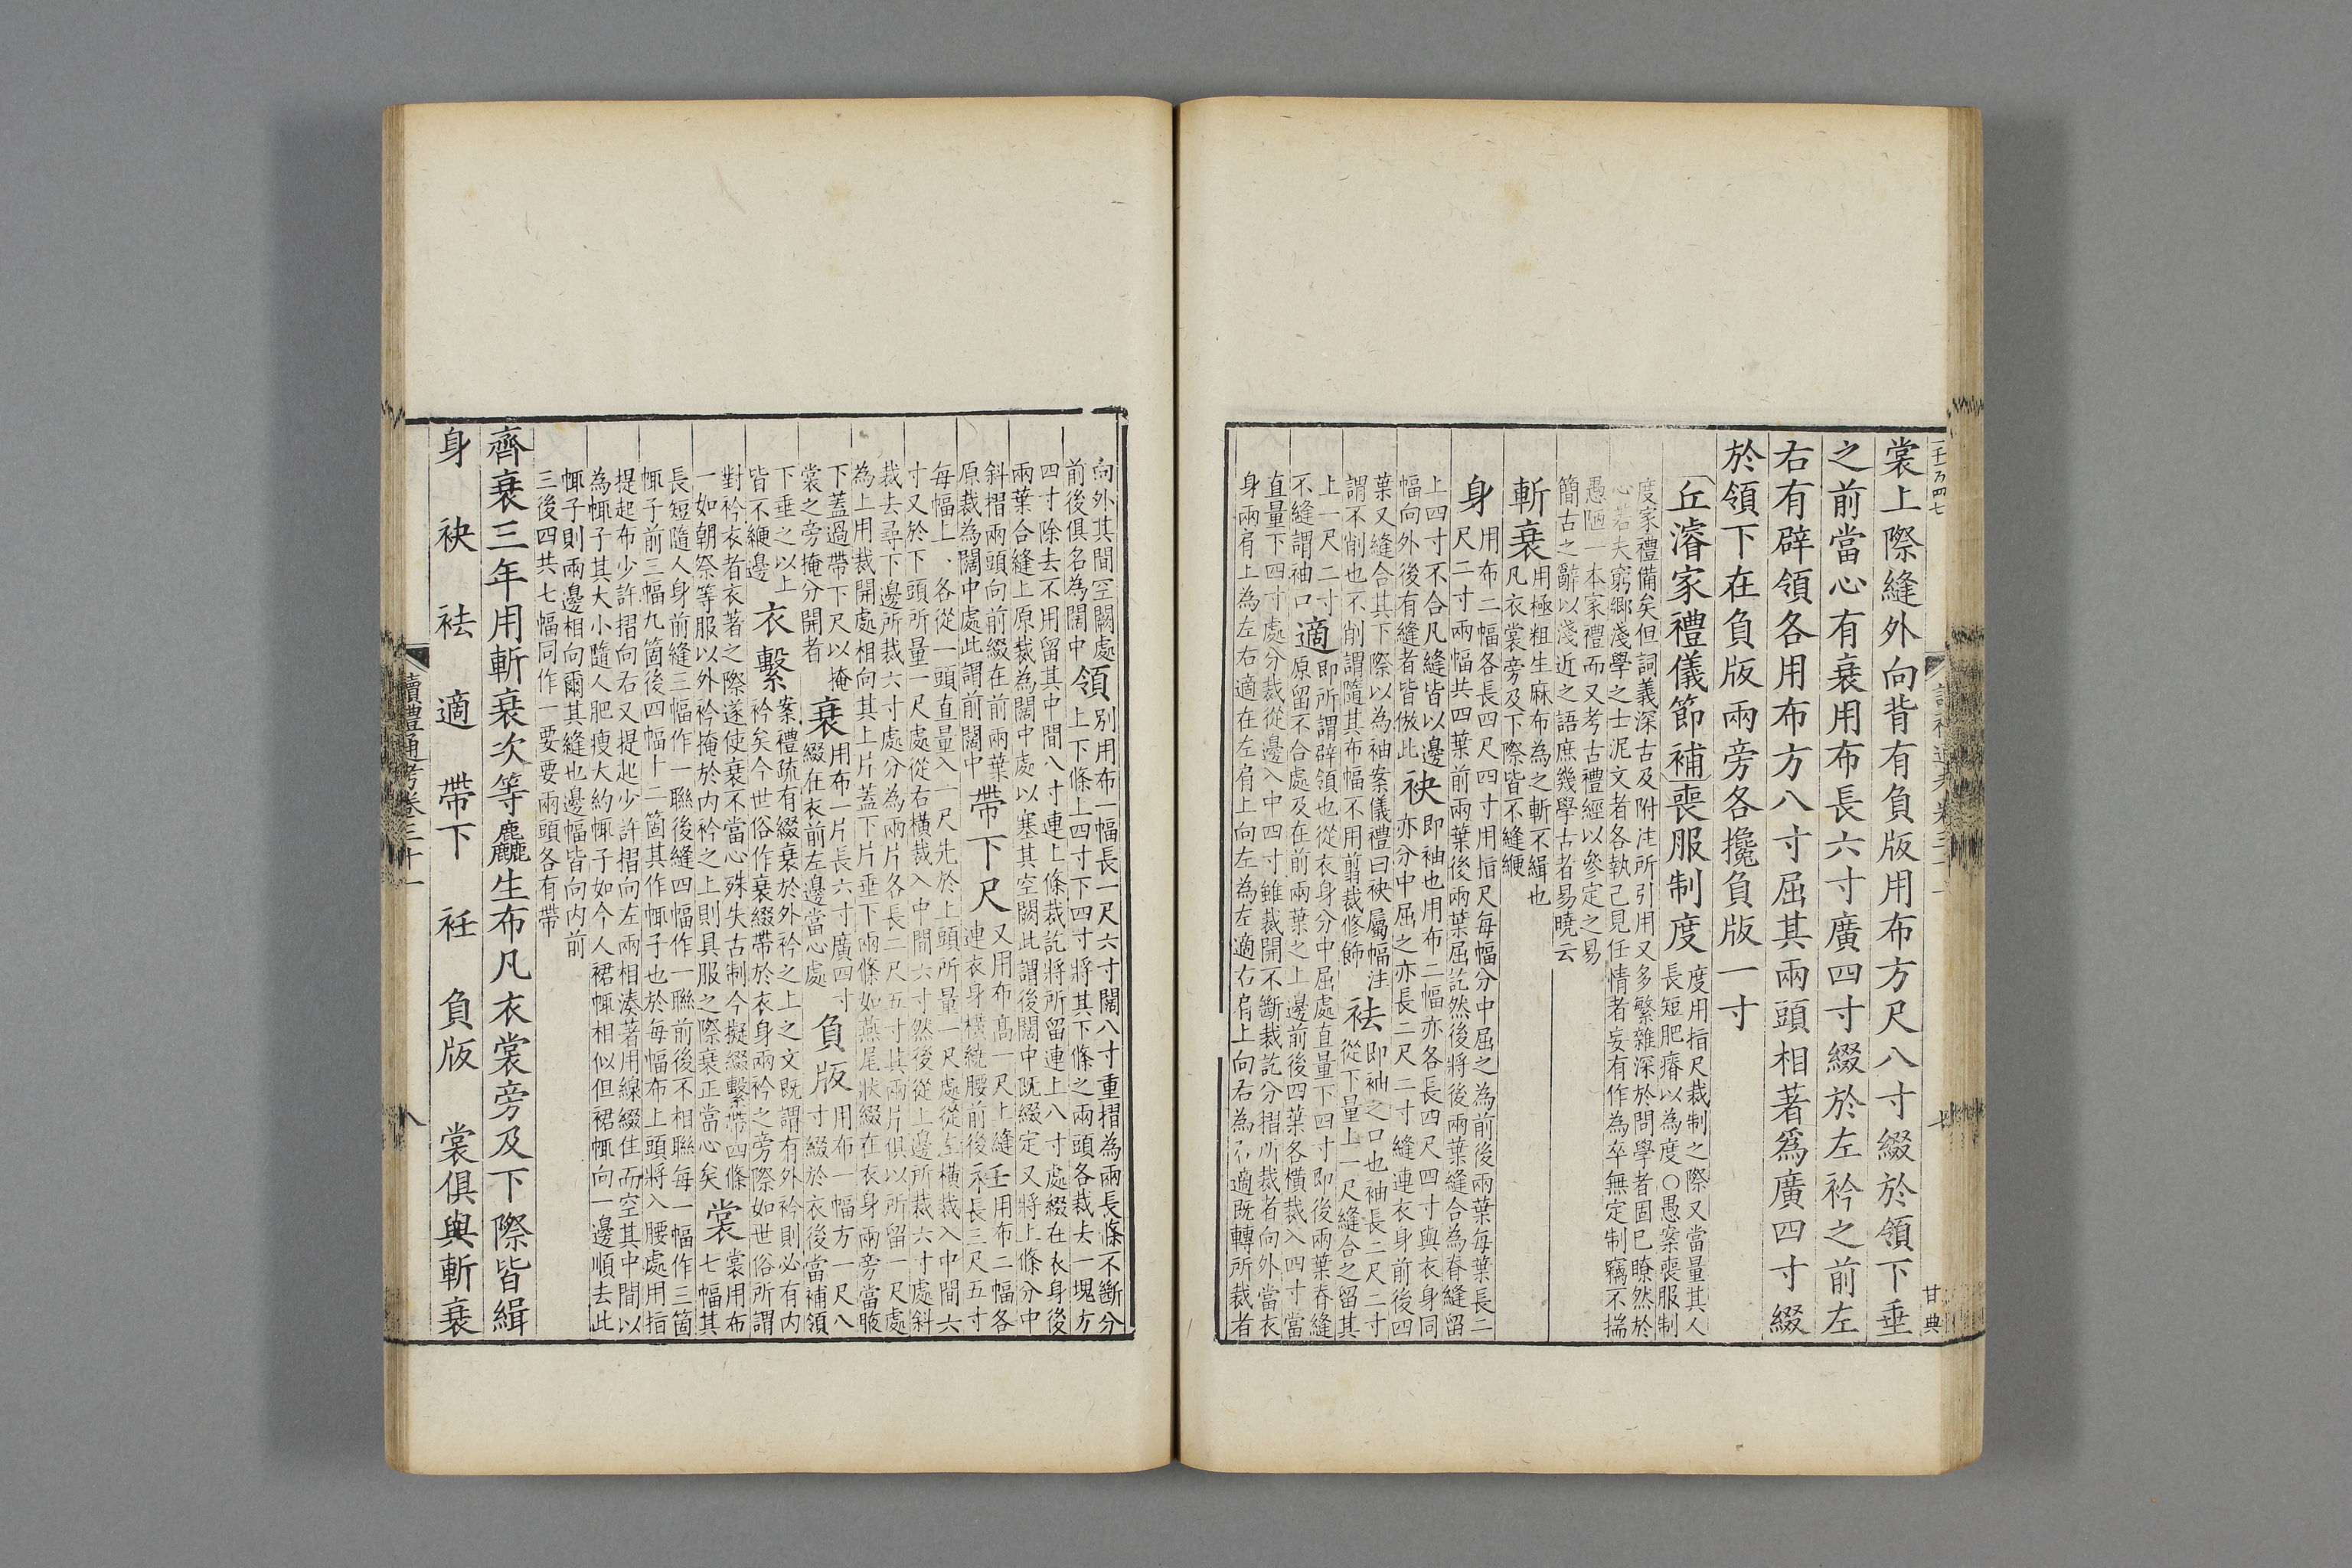 裳上際縫外向背有負版用布方尺八寸綴於領下垂
之前當心有衰用布長六寸廣四寸綴於左衿之前左
右有辟領各用布方八寸屈其兩頭相著爲廣四寸綴
於領下在負版兩旁各攙負版一寸
丘濬家禮儀節補喪服制度
度用指尺裁制之際又當量其人
長短肥瘠以為度○愚案喪服制
度家禮備矣但詞義深古及附注所引用又多繁雜深於問學者固已瞭然於
心若夫窮鄉淺學之士泥文者各執己見任情者妄有作為卒無定制竊不揣
愚陋一本家禮而又考古禮經以參定之易
簡古之辭以淺近之語庶幾學古者易曉云
斬衰
用極粗生麻布為之斬不緝也
凡衣裳旁及下際皆不縫緶
身
用布二幅各長四尺四寸用指尺每幅分中屈之為前後兩葉每葉長二
尺二寸兩幅共四葉前兩葉後兩葉屈訖然後將後兩葉縫合為脊縫留
上四寸不合凡縫皆以邊
幅向外後有縫者皆倣此
袂
即袖也用布二幅亦各長四尺四寸與衣身同
亦分中屈之亦長二尺二寸縫連衣身前後四
葉又縫合其下際以為袖案儀禮曰袂屬幅注
謂不削也不削謂隨其布幅不用剪裁修飾
袪
即袖之口也袖長二尺二寸
從下量上一尺縫合之留其
上一尺二寸
不縫謂袖口
適
即所謂辟領也從衣身分中屈處直量下四寸即後兩葉脊縫
原留不合處及在前兩葉之上邊前後四葉各橫裁入四寸當
直量下四寸處分裁從邊入中四寸雖裁開不斷裁訖分摺所裁者向外當衣
身兩肩上為左右適在左肩上向左為左適右肩上向右為右適既轉所裁者
向外其間空闕處
前後俱名為闊中
領
別用布一幅長一尺六寸闊八寸重摺為兩長條不斷分
上下條上四寸下四寸將其下條之兩頭各裁去一塊方
四寸除去不用留其中間八寸連上條裁訖將所留連上八寸處綴在衣身後
兩葉合縫上原裁為闊中處以塞其空闕此謂後闊中既綴定又將上條分中
斜摺兩頭向前綴在前兩葉
原裁為闊中處此謂前闊中
帶下尺
又用布高一尺上縫
連衣身橫繞腰前後
用布二幅各
長三尺五寸
每幅上、各從一頭直量入一尺先於上頭所量一尺處從左橫裁入中間六
寸又於下頭所量一尺處從右橫裁入中間六寸然後從上邊所裁六寸處斜
裁去尋下邊所裁六寸處分為兩片各長二尺五寸其兩片俱以所留一尺處
為上用裁開處相向其上片蓋下片垂下兩條如燕尾狀綴在衣身兩旁當腋
下蓋過帶下尺以掩
裳之旁掩分開者
衰
用布一片長六寸廣四寸
綴在衣前左邊當心處
負版
用布一幅方一尺八
寸綴於衣後當補領
下垂之以上
皆不緶邊
衣繫
案禮疏有綴衰於外衿之上之文既謂有外衿則必有內
衿矣今世俗作衰綴帶於衣身兩衿之旁際如世俗所謂
對衿衣者衣著之際遂使衰不當心殊失古制今擬綴繫帶四條
一如朝祭等服以外衿掩於內衿之上則具服之際衰正當心矣
裳
裳用布
七幅其
長短隨人身前縫三幅作一聯後縫四幅作一聯前後不相聯每一幅作三箇
㡇子前三幅九箇後四幅十二箇其作㡇子也於每幅布上頭將入腰處用指
提起布少許摺向右又提起少許摺向左兩相湊著用線綴住而空其中間以
為㡇子其大小隨人肥瘦大約㡇子如今人裙㡇相似但裙㡇向一邊順去此
㡇子則兩邊相向爾其縫也邊幅皆向內前
三後四共七幅同作一要要兩頭各有帶
齊衰三年用斬衰次等麤生布凡衣裳旁及下際皆緝
身 袂 袪 適 帶下 衽 負版 裳俱與斬衰
讀禮通考卷三十一
八